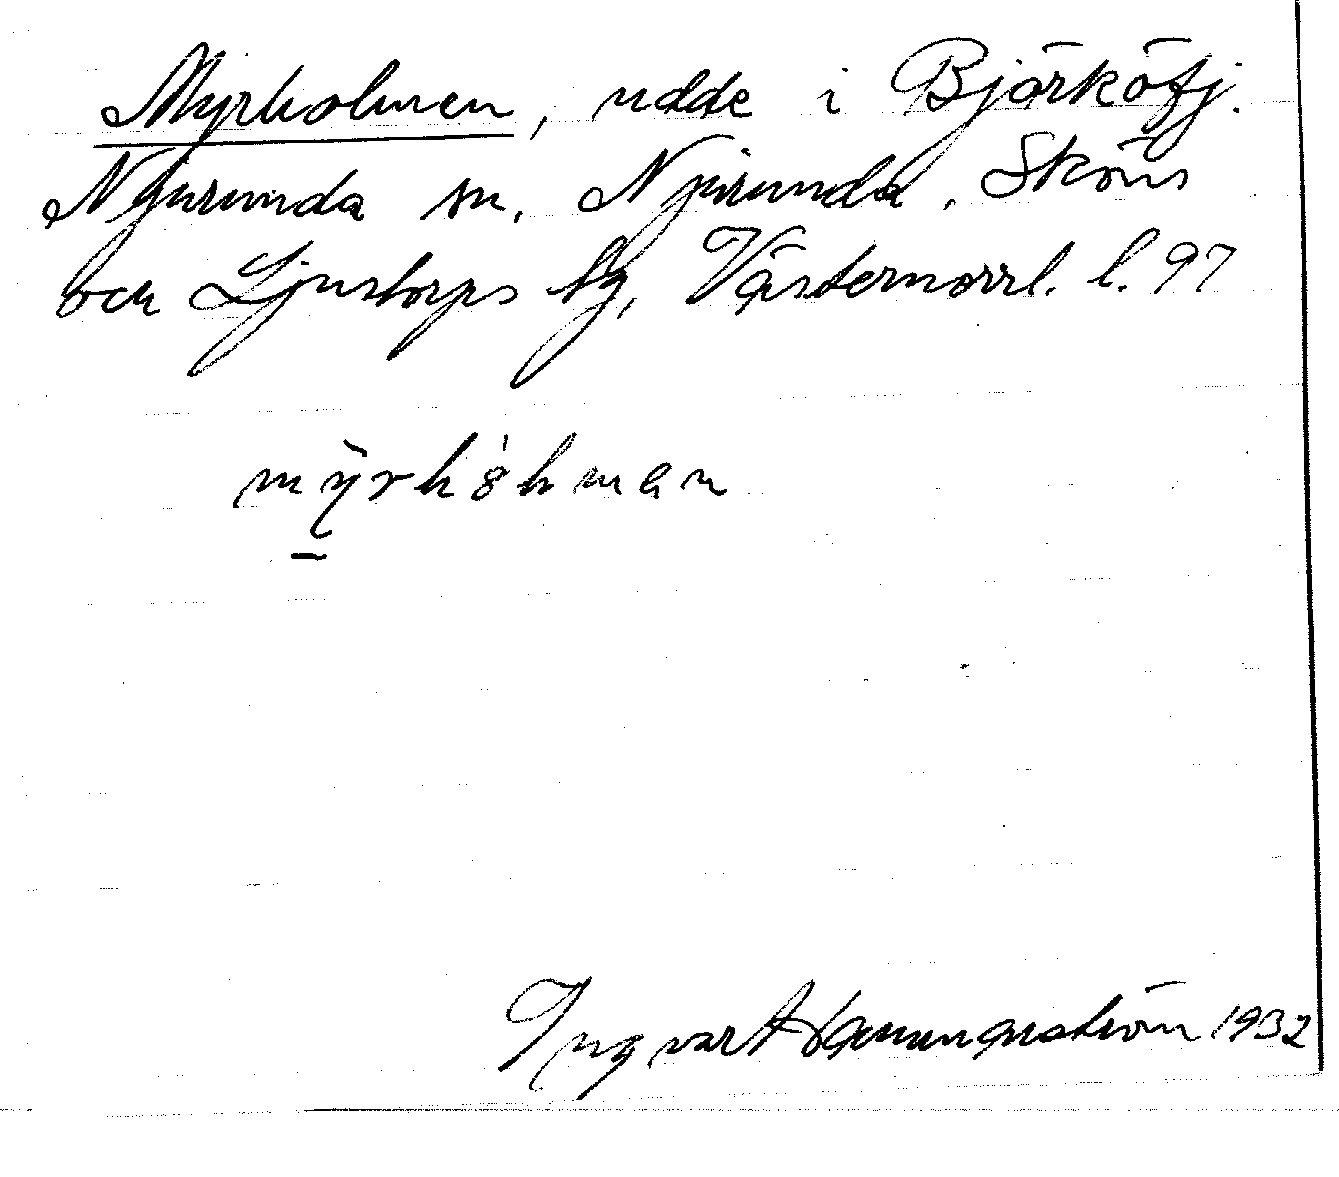 Myrholmen, udde i Björköfj.
Njurunda sn, Njurunda, Sköns
och Ljustorps tg, Västernorrl. l. 97
mỳrhòhman
Ingvar Hammarström 1932